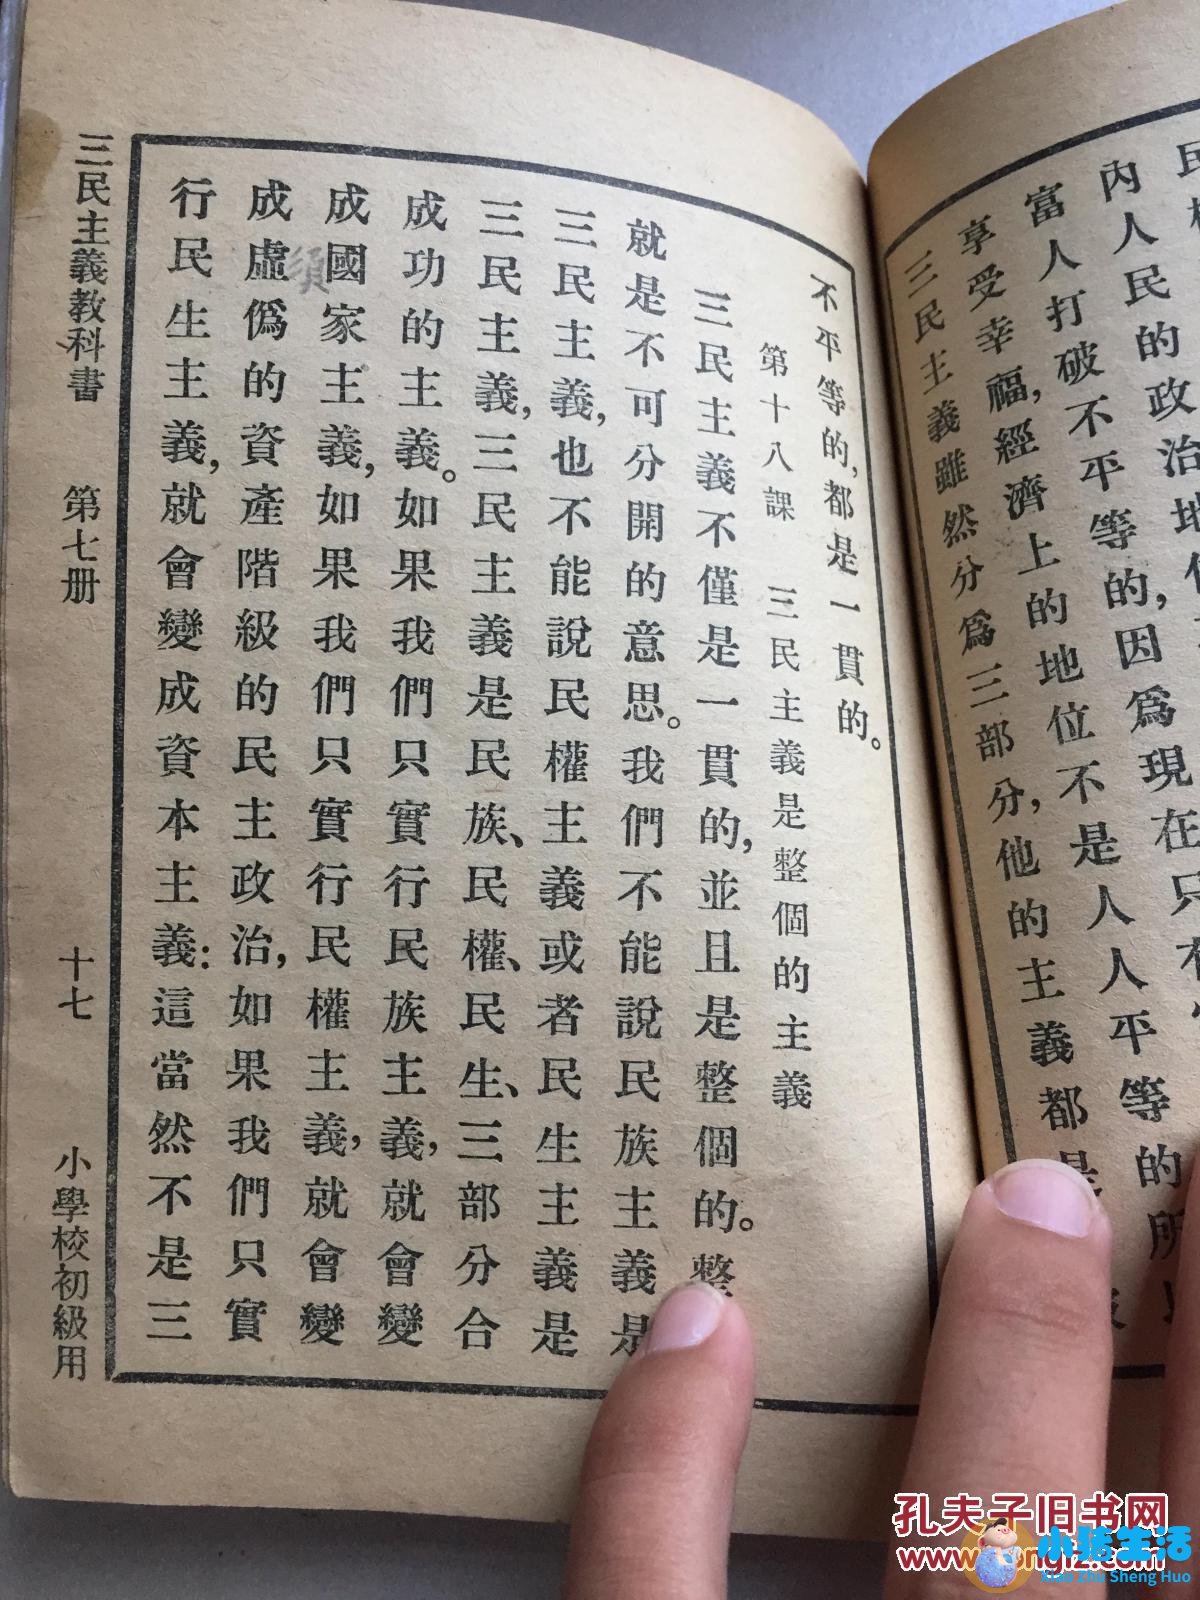 內人民的政治地
富人打破不平等的,因爲現在只有
享受幸福,經濟上的地位不是人人平等的所以
三民主義雖然分爲三部分,他的主義都是
不平等的,都是一貫的。
第十八課 三民主義是整個的主義
三民主義不僅是一貫的,並且是整個的。整
就是不可分開的意思。我們不能說民族主義是
三民主義,也不能說民權主義或者民生主義是
三民主義,三民主義是民族、民權、民生、三部分合
成功的主義。如果我們只實行民族主義,就會變
成國家主義,如果我們只實行民權主義,就會變
須
成虛僞的資產階級的民主政治,如果我們只實
行民生主義,就會變成資本主義:這當然不是三
三民主義教科書 第七册 十七 小學校初級用
孔夫子旧书网
小猪生活
Xiao Zhu Sheng Huo